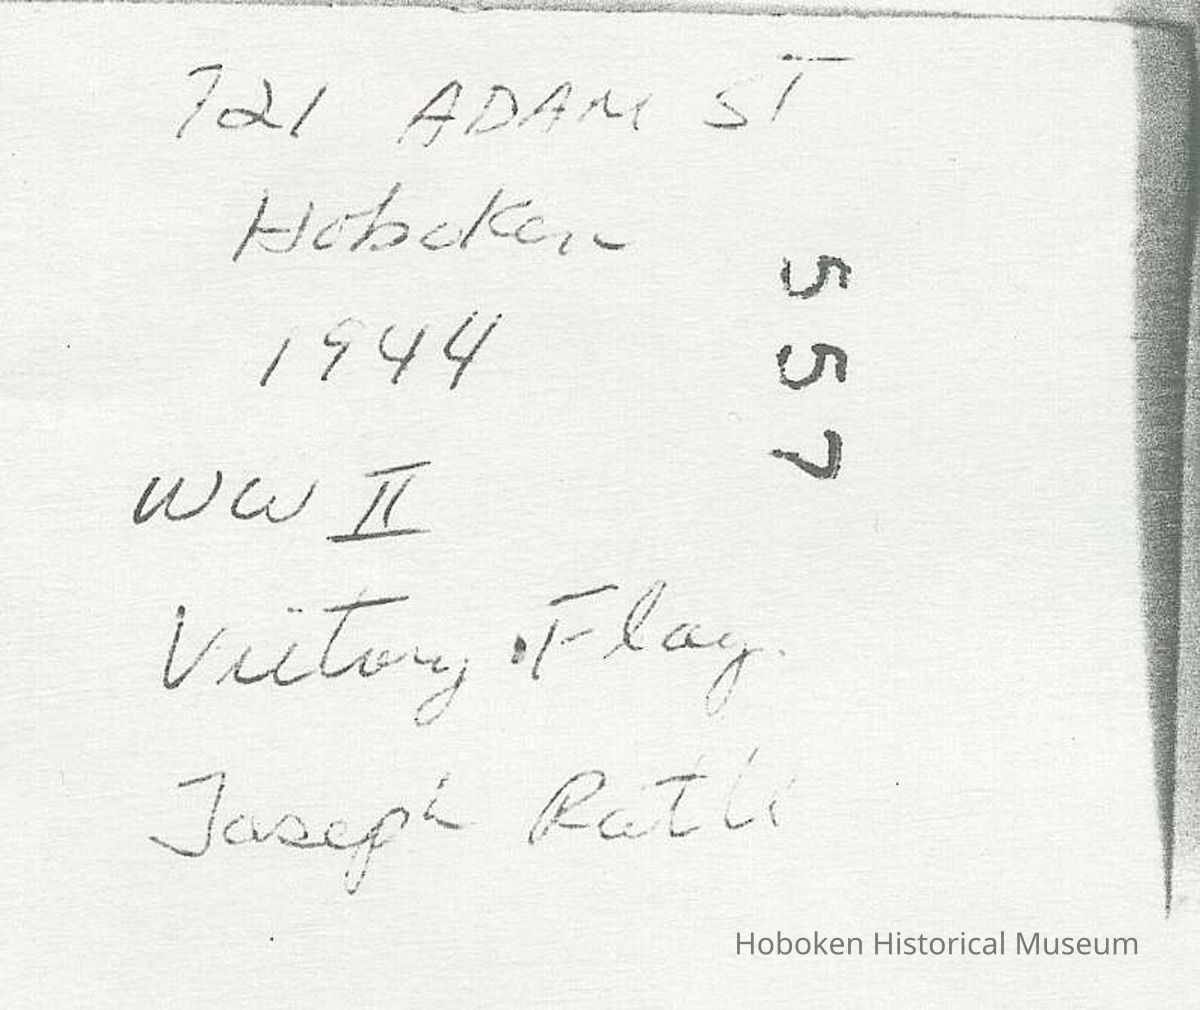 721 ADAM ST
Hoboken
1944
WW II
Victory Flag.
Joseph
557
Hoboken Historical Museum